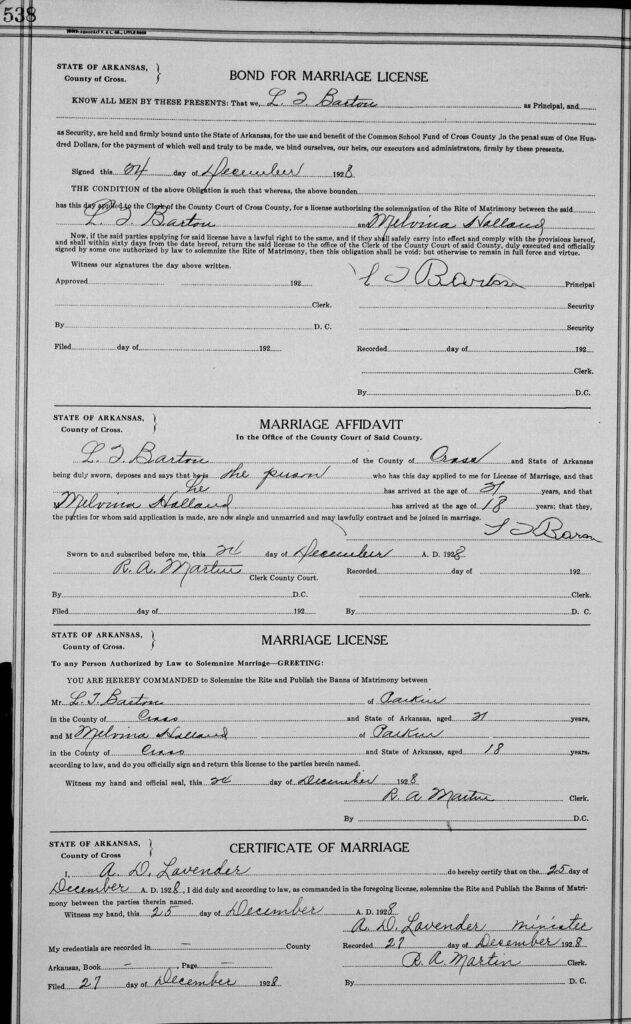 538
STATE OF ARKANSAS, }
County of Cross.
BOND FOR MARRIAGE LICENSE
KNOW ALL MEN BY THESE PRESENTS: That we, L. T. Barton as Principal, and
as Security, are held and firmly bound unto the State of Arkansas, for the use and benefit of the Common School Fund of Cross County ,in the penal sum of One Hun-
dred Dollars, for the payment of which well and truly to be made, we bind ourselves, our heirs, our executors and administrators, firmly by these presents.
Signed this 24 day of December 1928
THE CONDITION of the above Obligation is such that whereas, the above bounden
has this day applied to the Clerk of the County Court of Cross County, for a license authorising the solemnization of the Rite of Matrimony between the said
L. T. Barton and Melvina Holland
Now, if the said parties applying for said license have a lawful right to the same, and if they shall safely carry into effect and comply with the provisions hereof,
and shall within sixty days from the date hereof, return the said license to the office of the Clerk of the County Court of said County, duly executed and officially
signed by some one authorized by law to solemnize the Rite of Matrimony, then this obligation shall be void; but otherwise to remain in full force and virtue.
Witness our signatures the day above written.
Approved 192 L T Barton Principal
Clerk. Security
By D. C. Security
Filed day of 192 Recorded day of 192
Clerk.
By D.C.
STATE OF ARKANSAS, }
County of Cross.
MARRIAGE AFFIDAVIT
In the Office of the County Court of Said County.
L. T. Barton of the County of Cross and State of Arkansas
being duly sworn, deposes and says that he is the person who has this day applied to me for License of Marriage, and that
he has arrived at the age of 21 years, and that
Melvina Holland has arrived at the age of 18 years; that they,
the parties for whom said application is made, are now single and unmarried and may lawfully contract and be joined in marriage.
L T Baron
Sworn to and subscribed before me, this 24 day of December A. D. 1928
R. A. Martin Clerk County Court. Recorded day of 192
By D.C. Clerk.
Filed day of 192 By D. C.
STATE OF ARKANSAS, }
County of Cross.
MARRIAGE LICENSE
To any Person Authorized by Law to Solemnize Marriage—GREETING:
YOU ARE HEREBY COMMANDED to Solemnize the Rite and Publish the Banns of Matrimony between
Mr. L. T. Barton of Parkin
in the County of Cross and State of Arkansas, aged 21 years,
and M Melvina Holland of Parkin
in the County of Cross and State of Arkansas, aged 18 years,
according to law, and do you officially sign and return this license to the parties herein named.
Witness my hand and official seal, this 24 day of December 1928
R. A Martin Clerk.
By D.C.
STATE OF ARKANSAS, }
County of Cross
CERTIFICATE OF MARRIAGE
I, A. D. Lavender do hereby certify that on the 25 day of
December A. D. 1928, I did duly and according to law, as commanded in the foregoing license, solemnize the Rite and Publish the Banns of Matri-
mony between the parties therein named.
Witness my hand, this 25 day of December A. D. 1928
A. D. Lavender minister
My credentials are recorded in — County Recorded 27 day of December 1928
Arkansas, Book — , Page — R. A. Martin Clerk.
Filed 27 day of December 1928 By D. C.